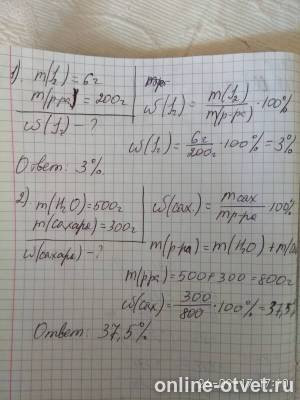 1) m(J₂) = 6г
m(р-ра) = 200г
ω(J₂) - ?
ω(J₂) = m(J₂) / m(р-ра) · 100%
ω(J₂) = 6г / 200г · 100% = 3%
Ответ: 3%
2) m(H₂O) = 500г
m(сахара) = 300г
ω(сахара) - ?
ω(сах.) = mсах / mр-ра · 100%
m(р-ра) = m(H₂O) +
m(рра) = 500 + 300 = 800г
ω(сах) = 300 / 800 · 100% = 37,5
Ответ: 37,5%
online-otvet.ru